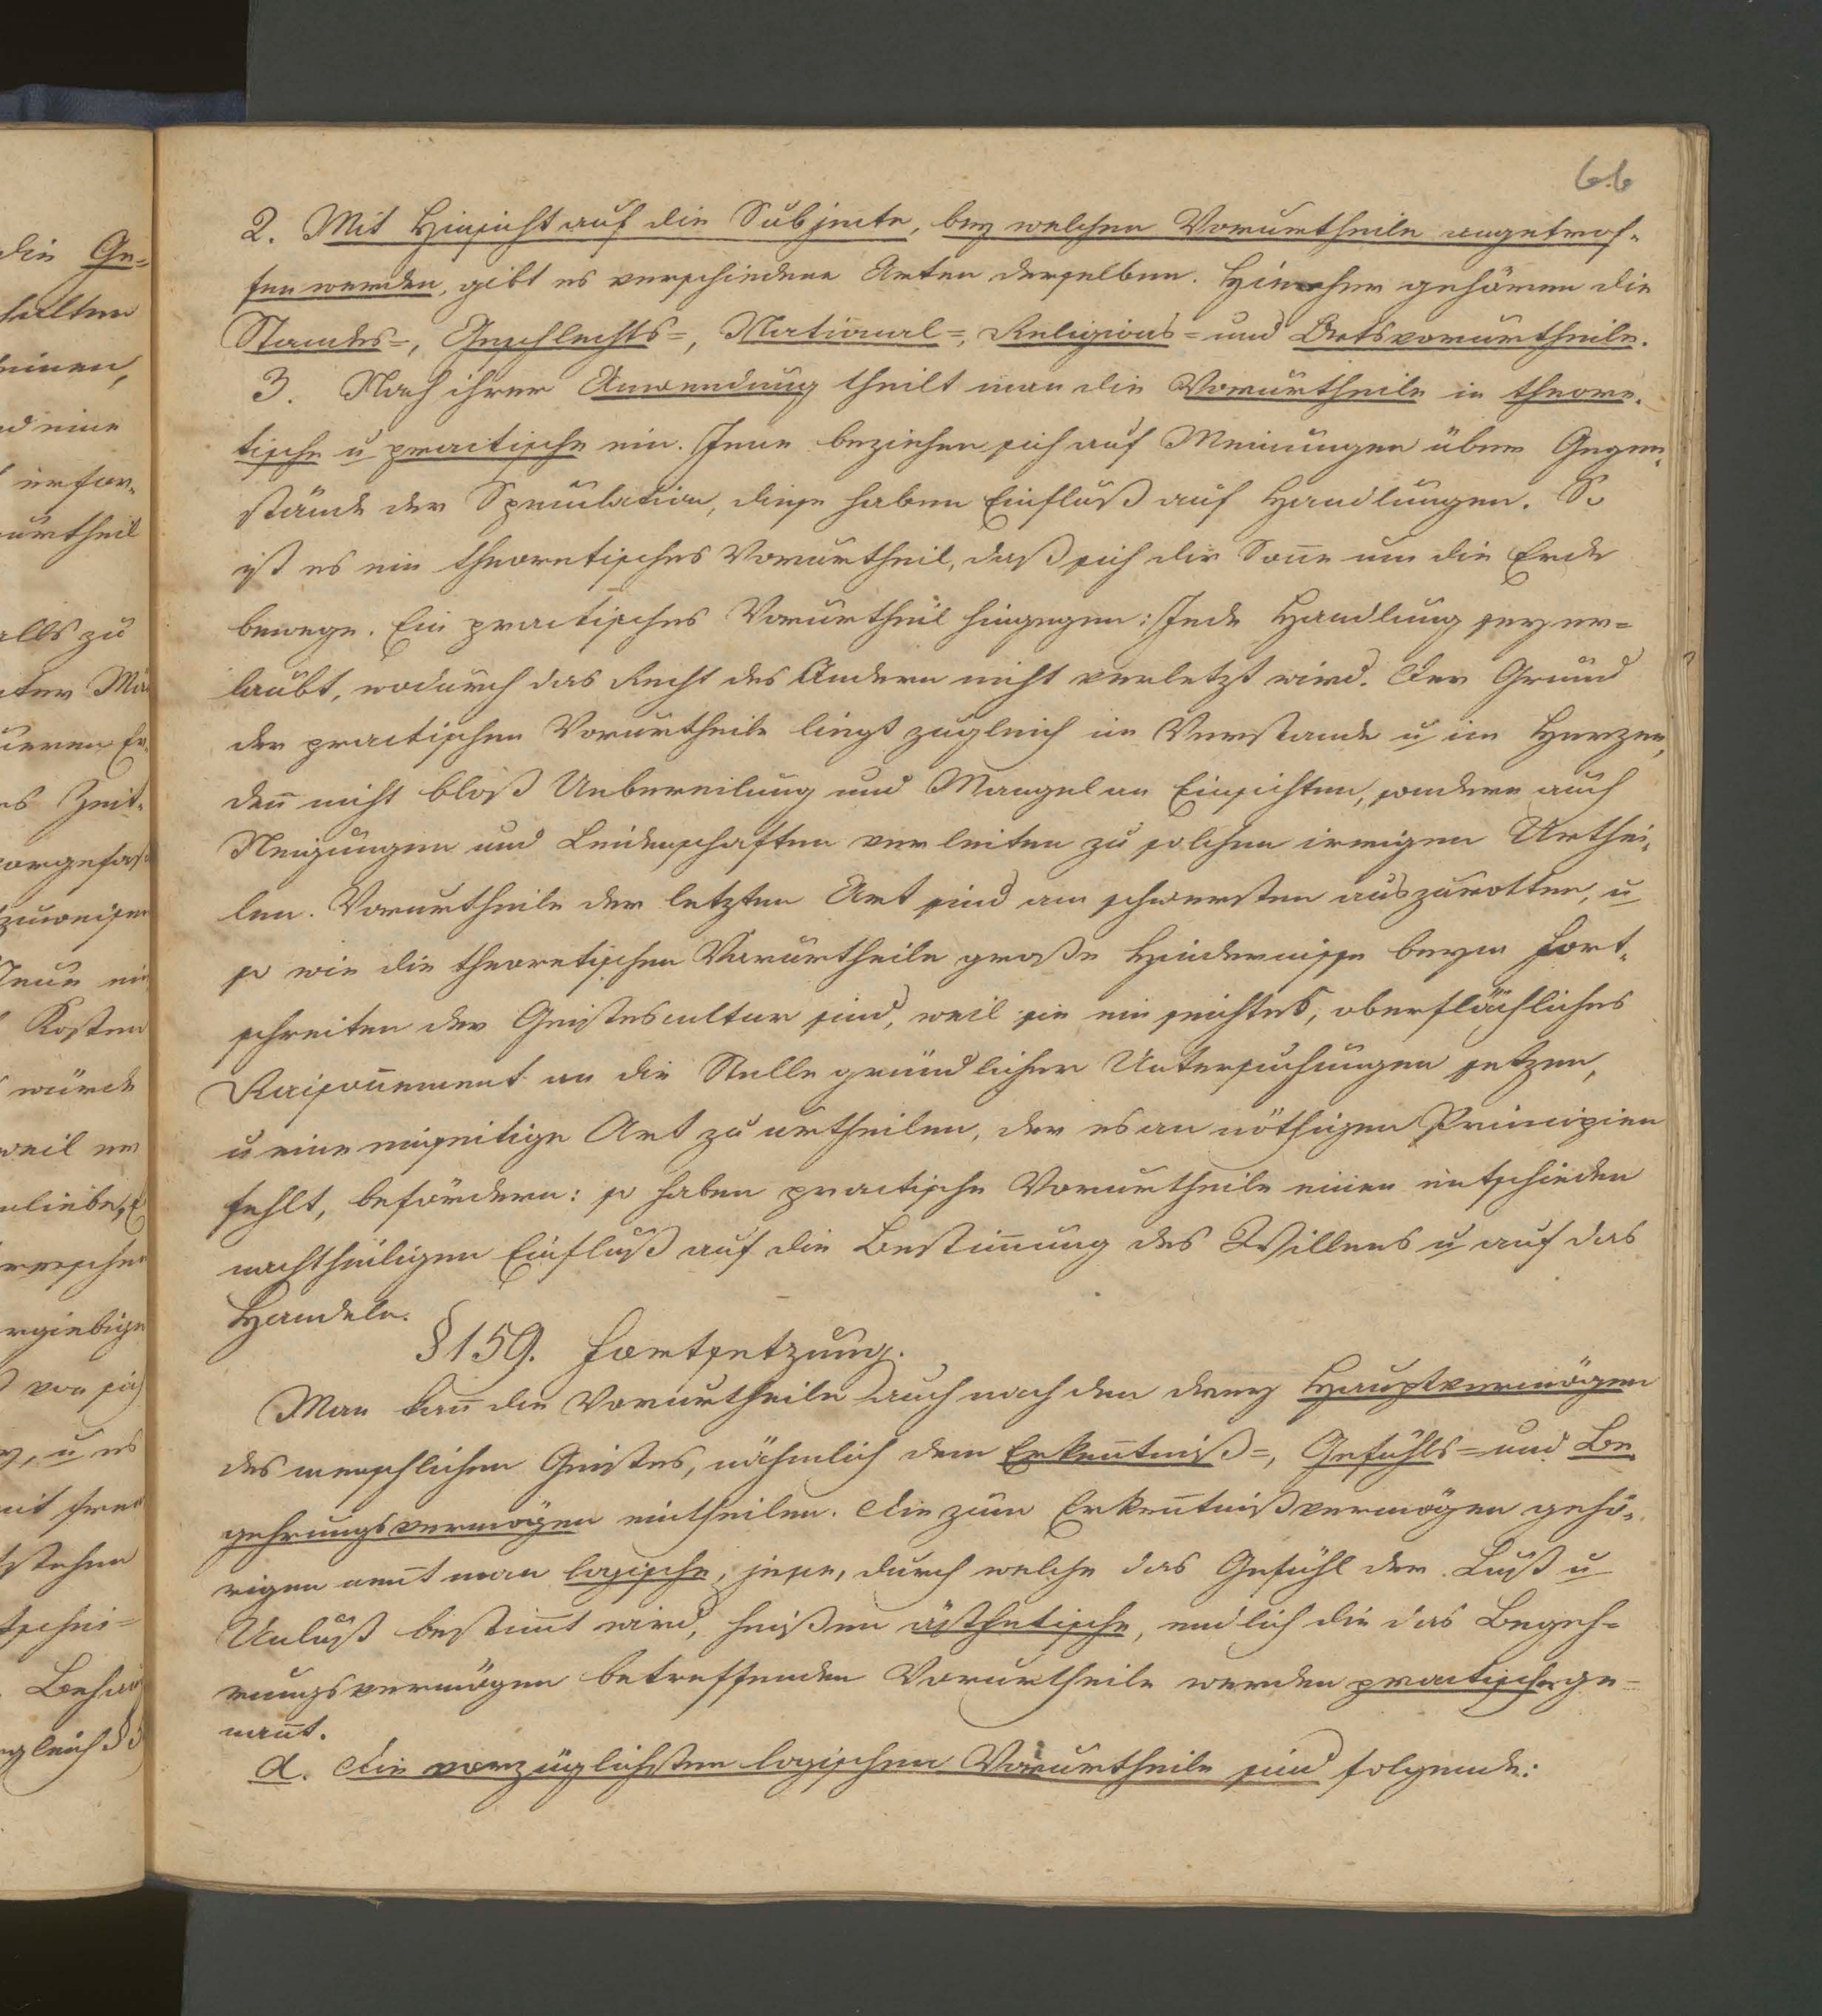 die Ge-
urtheil
66
2. Mit Hinsicht auf die Subjecte, bey welchen Vorurtheile angetrof-
fen werden, gibt es verschiedene Arten derselben. Hierher gehören die
Standes-, Geschlechts-, National-, Religions- und Ortsvorurtheile.
3. Nach ihrer Anwendung theilt man die Vorurtheile in theore-
tische u practische ein. Jene beziehen sich auf Meinungen über Gegen-
stände der Speculation, diese haben Einfluß auf Handlungen. So
ist es ein theoretisches Vorurtheil, daß sich die Son̄e um die Erde
bewege. Ein practisches Vorurtheil hingegen: Jede Handlung sey er-
laubt, wodurch das Recht des Andern nicht verletzt wird. Der Grund
der practischen Vorurtheile liegt zugleich im Verstande u im Herzen,
den̄ nicht bloß Uebereilung und Mangel an Einsichten, sondern auch
Neigungen und Leidenschaften verleiten zu solchen irrigen Urthei-
len. Vorurtheile der letzten Art sind am schwersten auszurotten, u
so wie die theoretischen Vorurtheile große Hindernisse beym Fort-
schreiten der Geistescultur sind, weil sie ein seichtes, oberflächliches
Raison̄ement an die Stelle gründlicher Untersuchungen setzen,
u eine einseitige Art zu urtheilen, der es an nöthigen Principien
fehlt, befördern: so haben practische Vorurtheile einen entschieden
nachtheiligen Einfluß auf die Bestim̄ung des Willens u auf das
Handeln.
§ 159. Fortsetzung.
Man kan̄ die Vorurtheile auch nach den drey Hauptvermögen
des menschlichen Geistes, nähmlich dem Erken̄tniß-, Gefühls- und Be-
gehrungsvermögen eintheilen. Die zum Erken̄tnißvermögen gehö-
rigen nen̄t man logische, jene, durch welche das Gefühl der Lust u
Unlust bestim̄t wird, heißen ästhetische, endlich die das Begeh-
rungsvermögen betreffenden Vorurtheile werden practische ge-
nan̄t.
a. Die vorzüglichsten logischen Vorurtheile sind folgende: